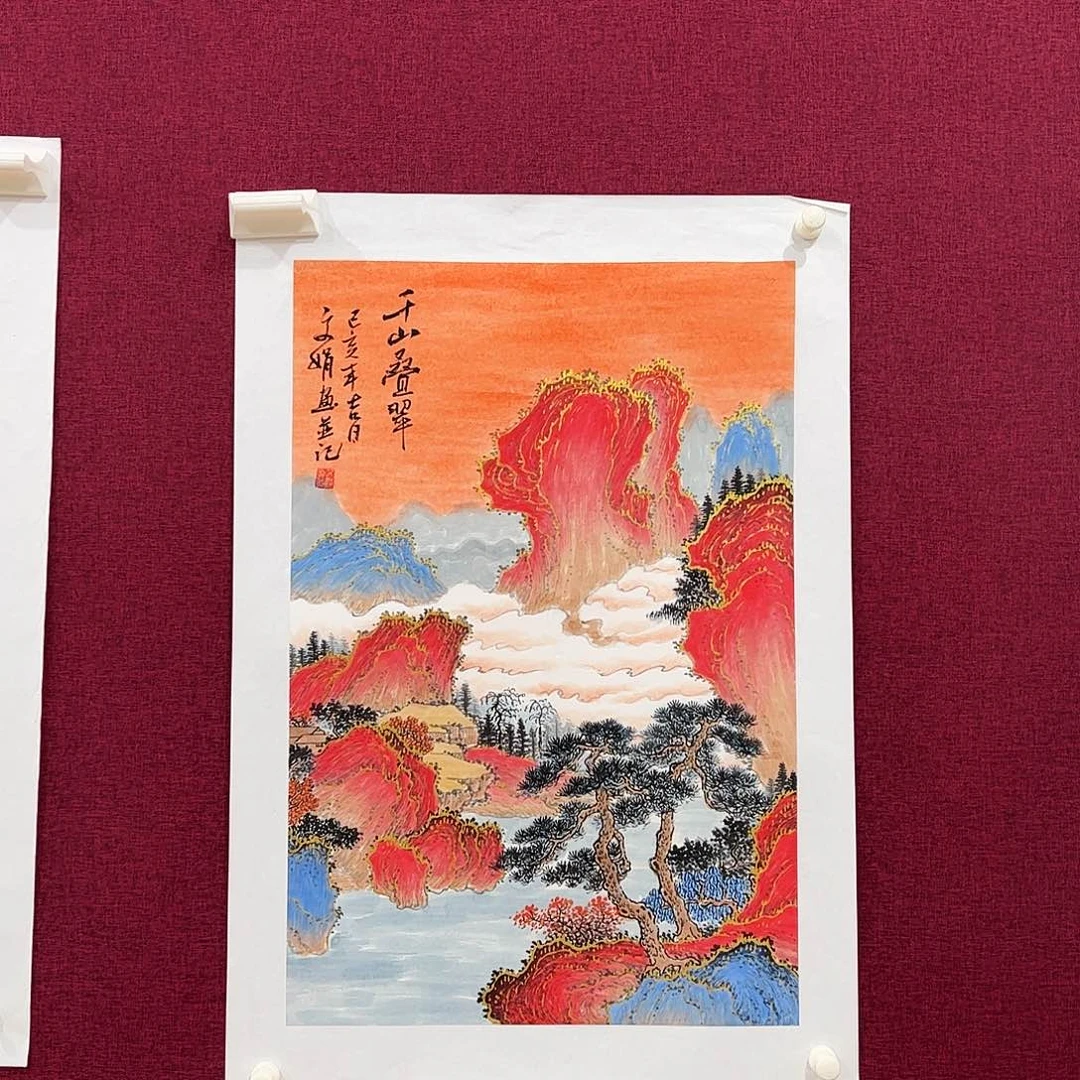 千山叠翠
己亥年吉日
文娟画並记